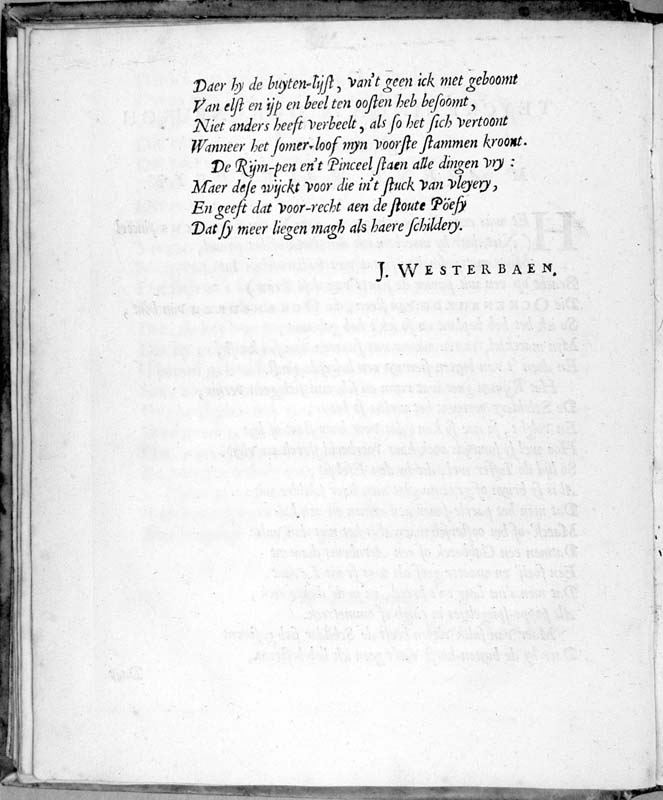 Daer hy de buyten-lijst, van't geen ick met geboomt
Van elst en ijp en beel ten oosten heb besoomt,
Niet anders heeft verbeelt, als so het sich vertoont
Wanneer het somer-loof myn voorste stammen kroont.
De Rijm-pen en't Pinceel staen alle dingen vry:
Maer dese wijckt voor die in't stuck van vleyery,
En geeft dat voor-recht aen de stoute Pöesy
Dat sy meer liegen magh als haere schildery.
J. WESTERBAEN.